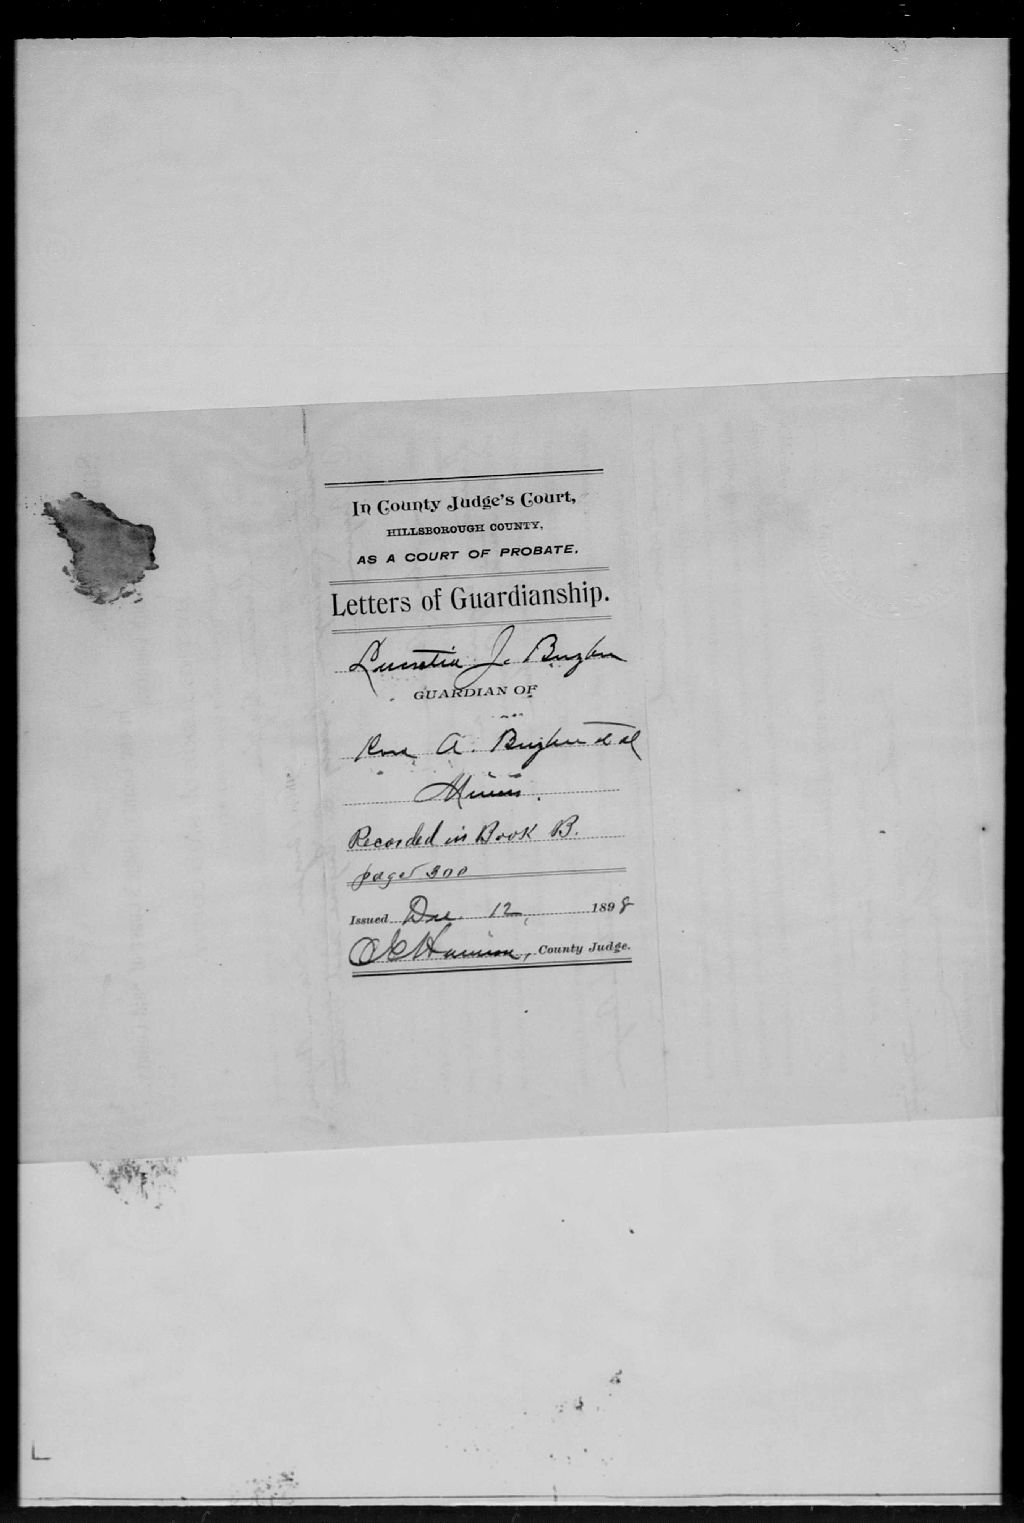 In County Judge's Court,
HILLSBOROUGH COUNTY,
AS A COURT OF PROBATE.
Letters of Guardianship.
Lucretia J. Buzbee
GUARDIAN OF
A. Buzbee et al
Minors.
Recorded in Book B.
page 300
Issued Dec. 12, 1898
Harrison, County Judge.